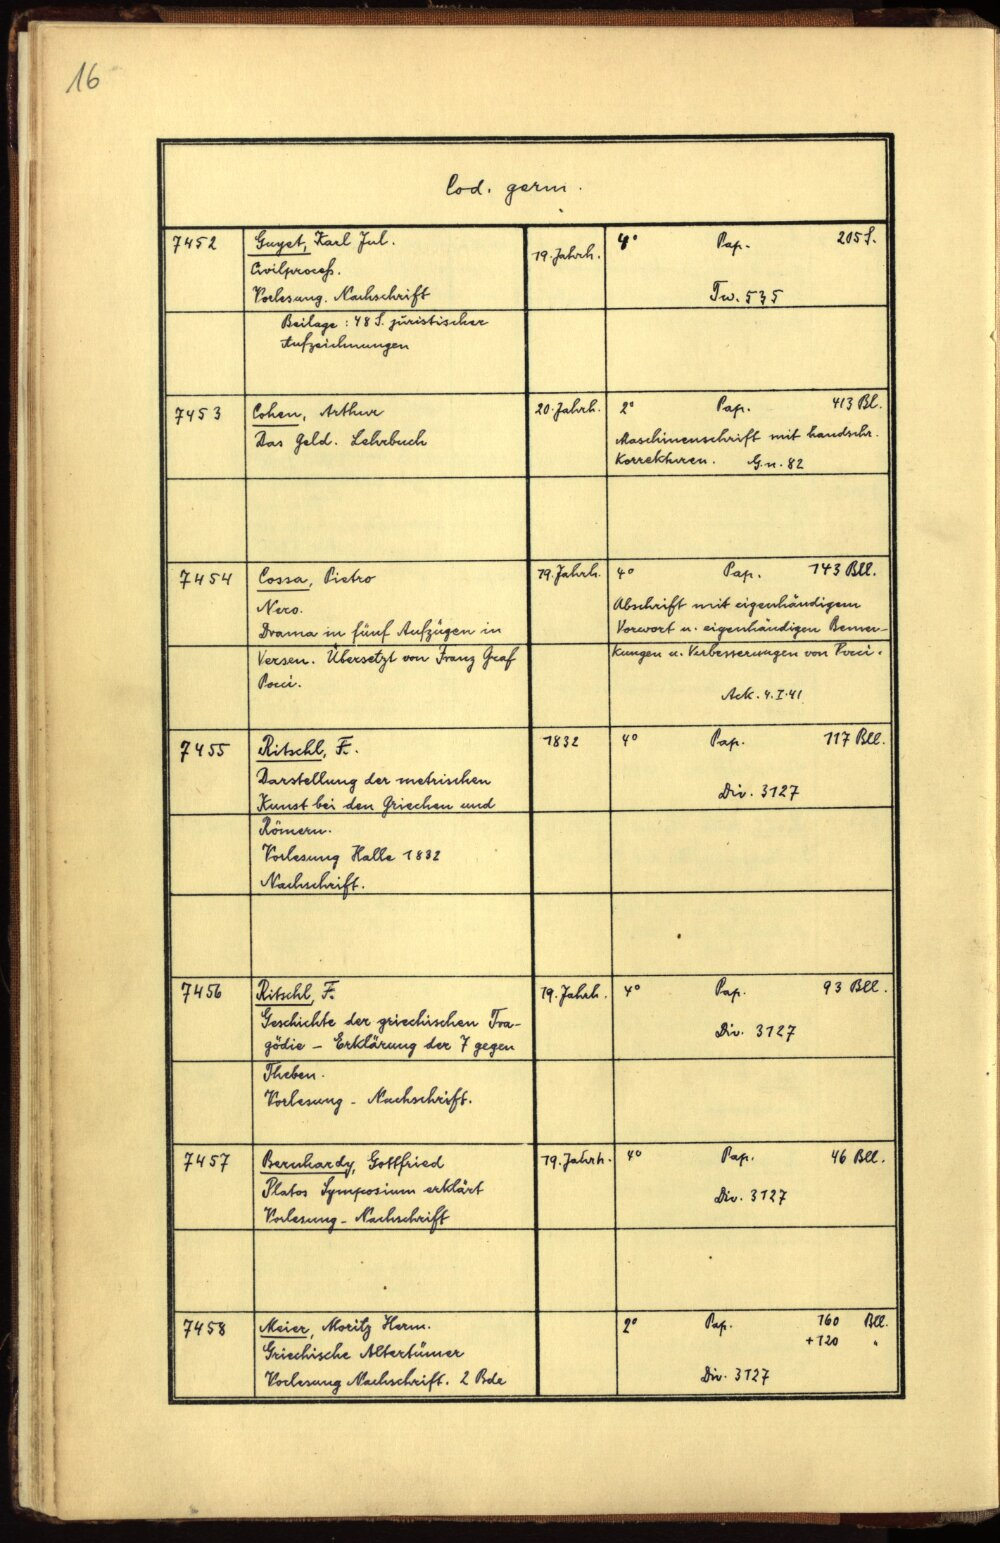 16
Cod. germ.
7452 Guyet, Karl Jul. 19. Jahrh. 4° Pap. 205 S.
Civilproceß.
Vorlesung. Nachschrift Tw. 535
Beilage: 48 S. juristischer
Aufzeichnungen
7453 Cohen, Arthur 20. Jahrh. 2° Pap. 413 Bl.
Das Geld. Lehrbuch Maschinenschrift mit handschr.
Korrekturen. G.n. 82
7454 Cossa, Pietro 19. Jahrh. 4° Pap. 143 Bll.
Nero. Abschrift mit eigenhändigem
Drama in fünf Aufzügen in Vorwort u. eigenhändigen Bemer-
Versen. Übersetzt von Franz Graf kungen u. Verbesserungen von Pocci.
Pocci. Ack. 4.I.41
7455 Ritschl, F. 1832 4° Pap. 117 Bll.
Darstellung der metrischen
Kunst bei den Griechen und Div. 3127
Römern.
Vorlesung Halle 1832
Nachschrift.
7456 Ritschl, F. 19. Jahrh. 4° Pap. 93 Bll.
Geschichte der griechischen Tra-
gödie – Erklärung der 7 gegen Div. 3127
Theben.
Vorlesung – Nachschrift.
7457 Bernhardy, Gottfried 19. Jahrh. 4° Pap. 46 Bll.
Platos Symposium erklärt Div. 3127
Vorlesung – Nachschrift
7458 Meier, Moritz Herm. 2° Pap. 160 Bll.
Griechische Altertümer +120 "
Vorlesung Nachschrift. 2 Bde Div. 3127